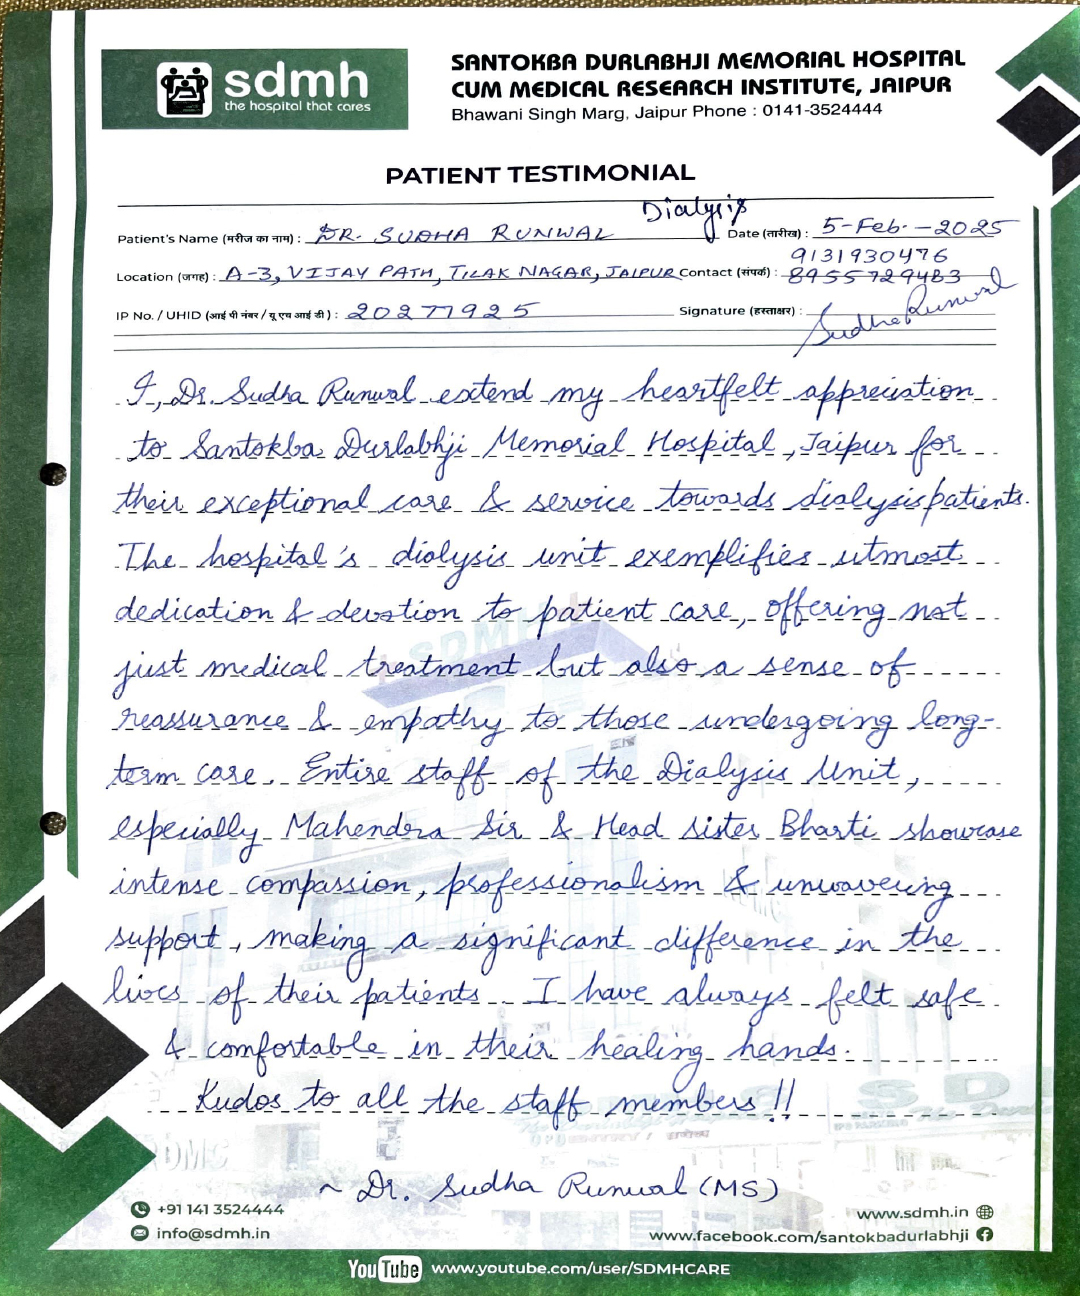 sdmh
the hospital that cares
SANTOKBA DURLABHJI MEMORIAL HOSPITAL
CUM MEDICAL RESEARCH INSTITUTE, JAIPUR
Bhawani Singh Marg, Jaipur Phone : 0141-3524444
PATIENT TESTIMONIAL
Dialysis
Patient's Name (मरीज का नाम) : DR. SUDHA RUNWAL Date (तारीख) : 5-Feb.-2025
9131930476
Location (जगह) : A-3, VIJAY PATH, TILAK NAGAR, JAIPUR Contact (संपर्क) : 8955729483
IP No. / UHID (आई पी नंबर / यू एच आई डी) : 20277925 Signature (हस्ताक्षर) : Sudha Runwal
I, Dr. Sudha Runwal extend my heartfelt appreciation
to Santokba Durlabhji Memorial Hospital, Jaipur for
their exceptional care & service towards dialysis patients.
The hospital's dialysis unit exemplifies utmost
dedication & devotion to patient care, offering not
just medical treatment but also a sense of
reassurance & empathy to those undergoing long-
term care. Entire staff of the Dialysis Unit,
especially Mahendra Sir & Head sister Bharti showcase
intense compassion, professionalism & unwavering
support, making a significant difference in the
lives of their patients. I have always felt safe
& comfortable in their healing hands.
Kudos to all the staff members!!
~ Dr. Sudha Runwal (MS)
+91 141 3524444
www.sdmh.in
info@sdmh.in
www.facebook.com/santokbadurlabhji
YouTube www.youtube.com/user/SDMHCARE